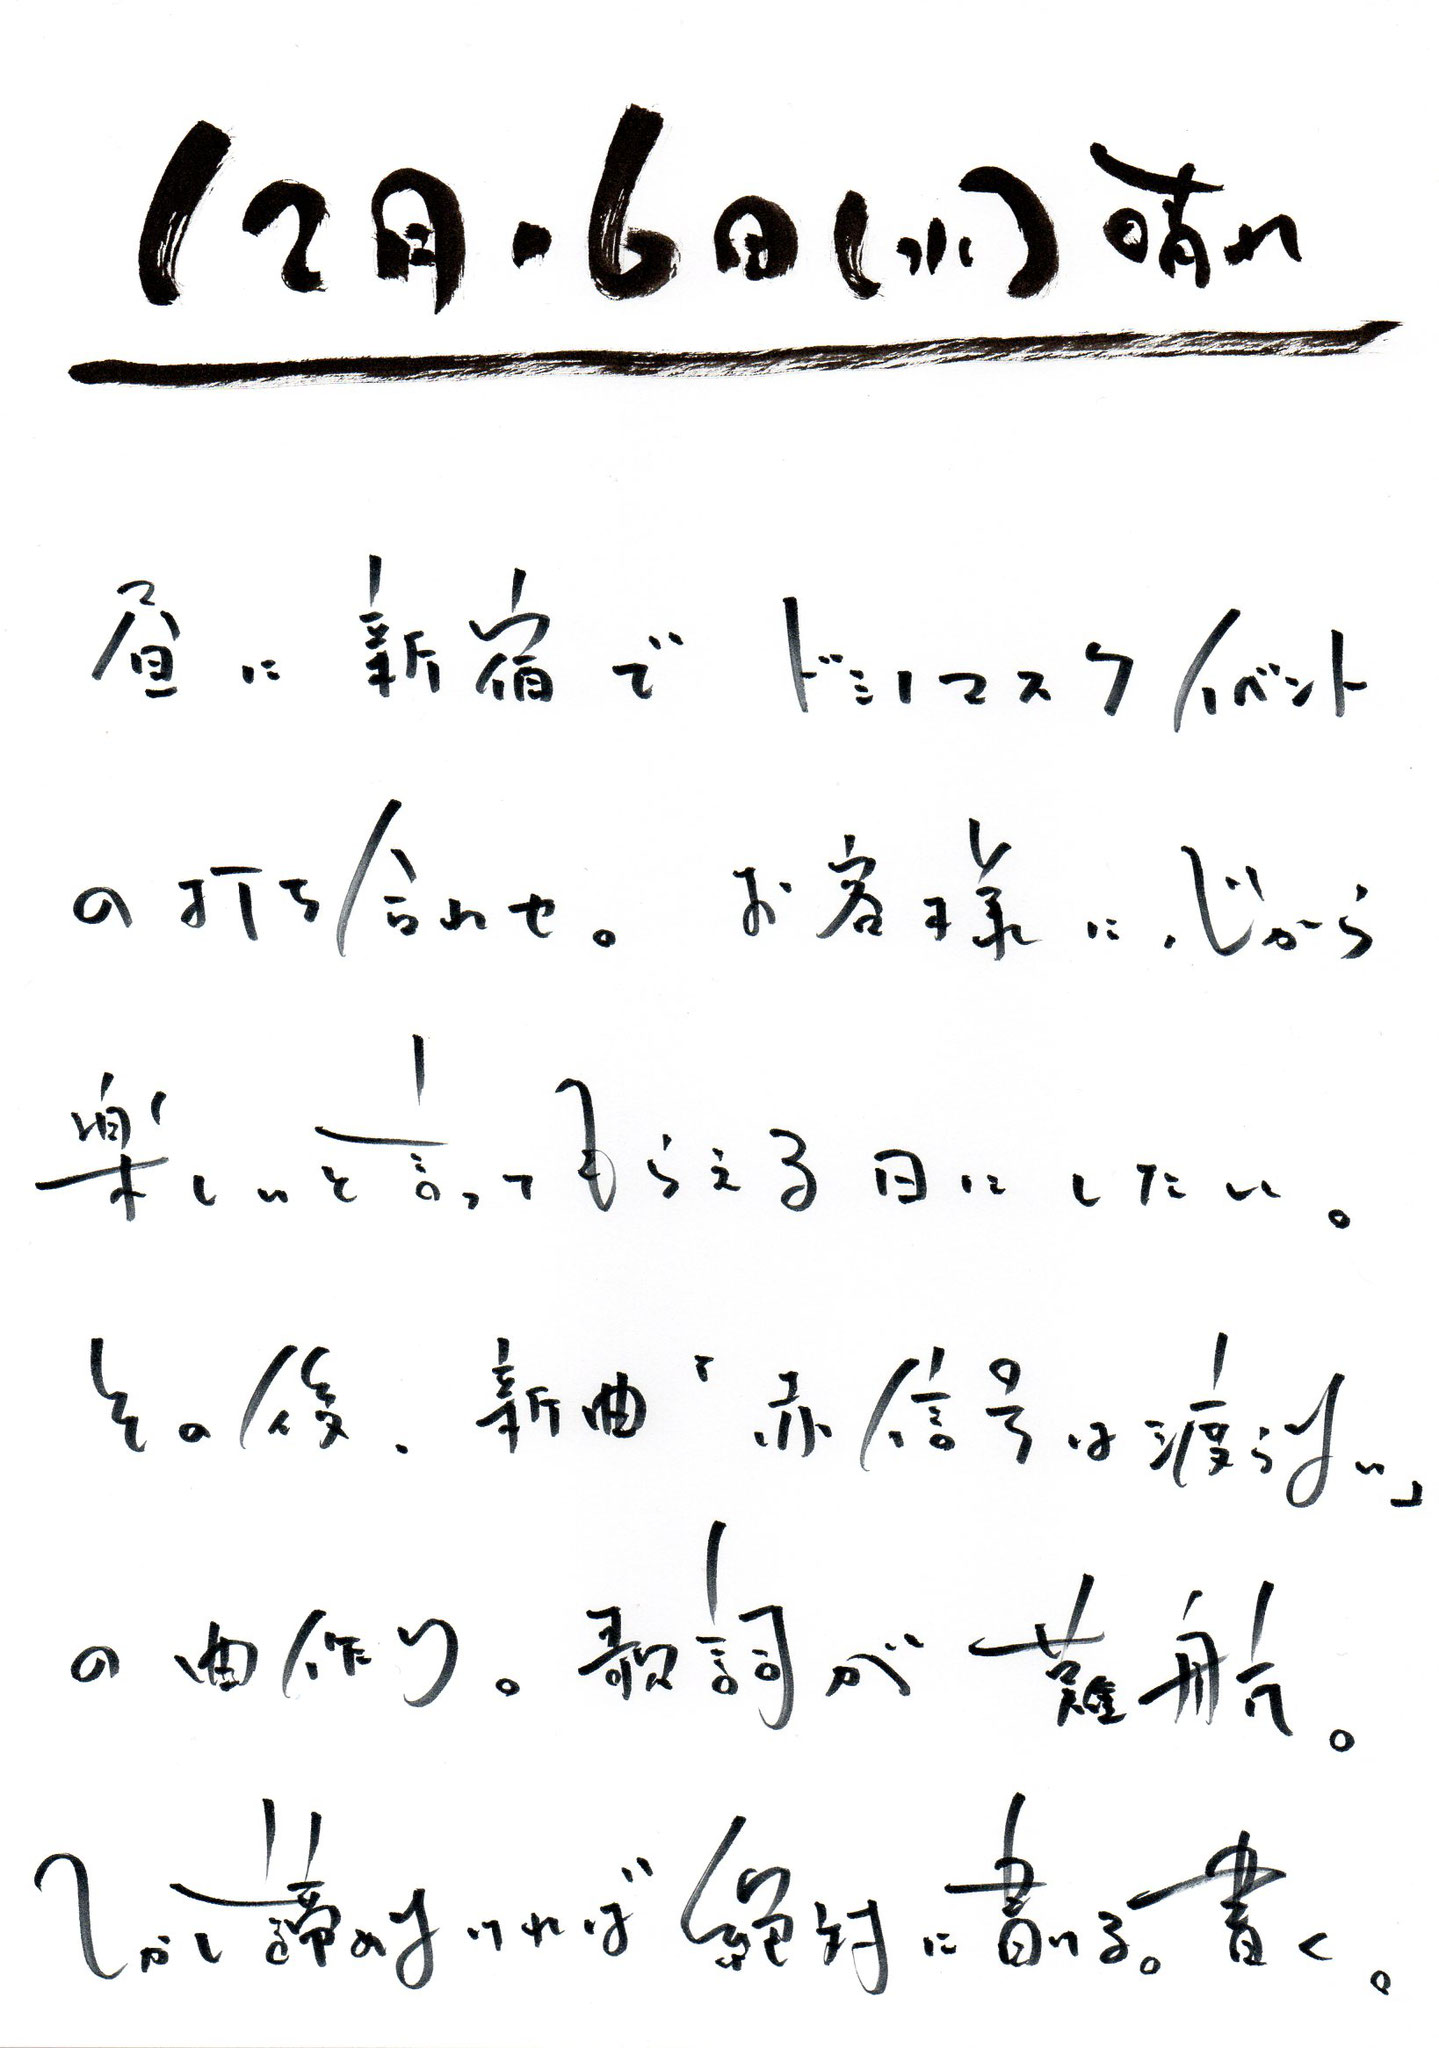 12月・6日(水)晴れ
昼に新宿でドミノマスクイベント
の打ち合わせ。お客様に、心から
楽しいと言ってもらえる日にしたい。
その後、新曲「赤信号は渡らない」
の曲作り。歌詞が難航。
しかし諦めなければ絶対に書ける。書く。